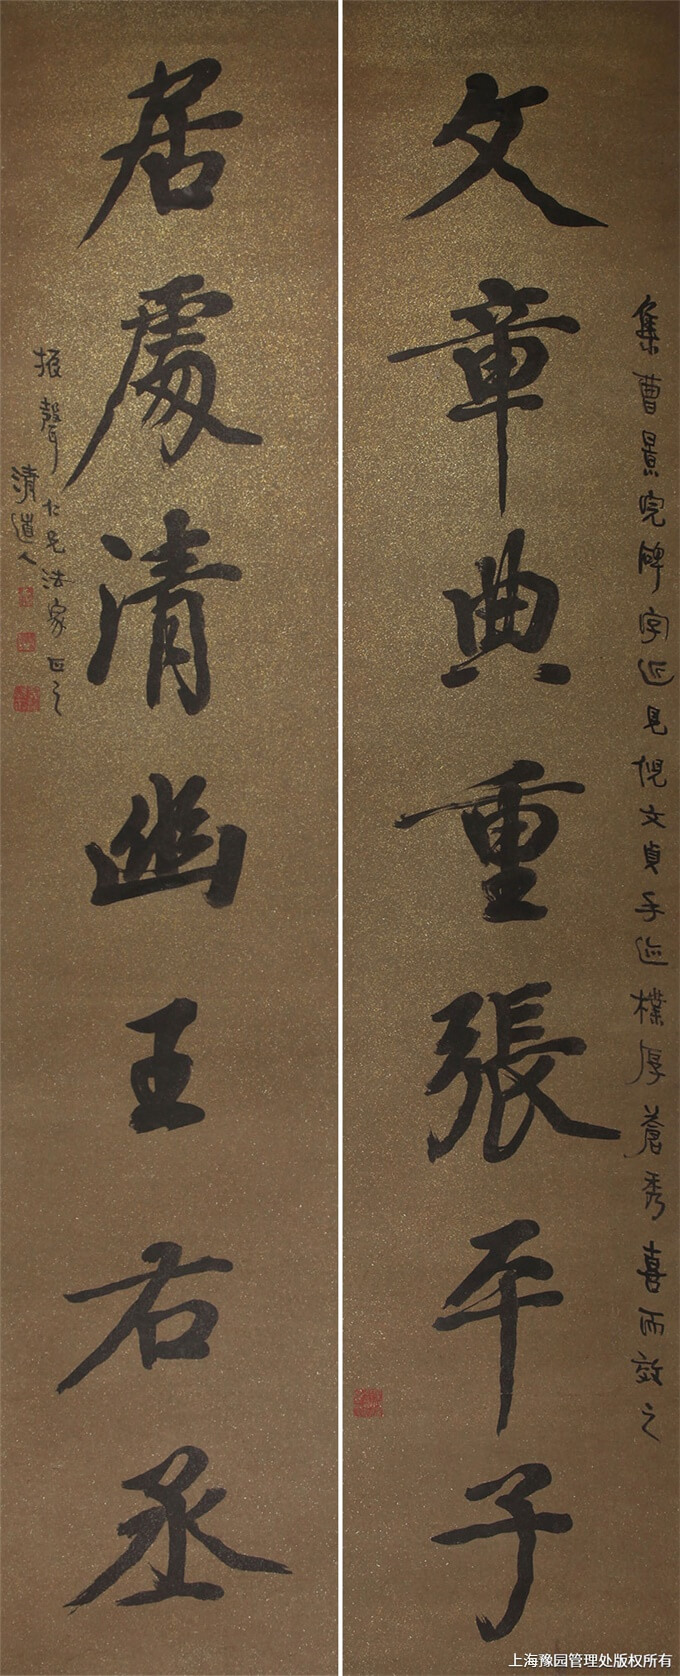 集曹景完碑字近见倪文貞手迹樸厚蒼秀喜而效之
文章典重張平子
居處清幽王右丞
振聲仁兄法家正之
清道人
上海豫园管理处版权所有